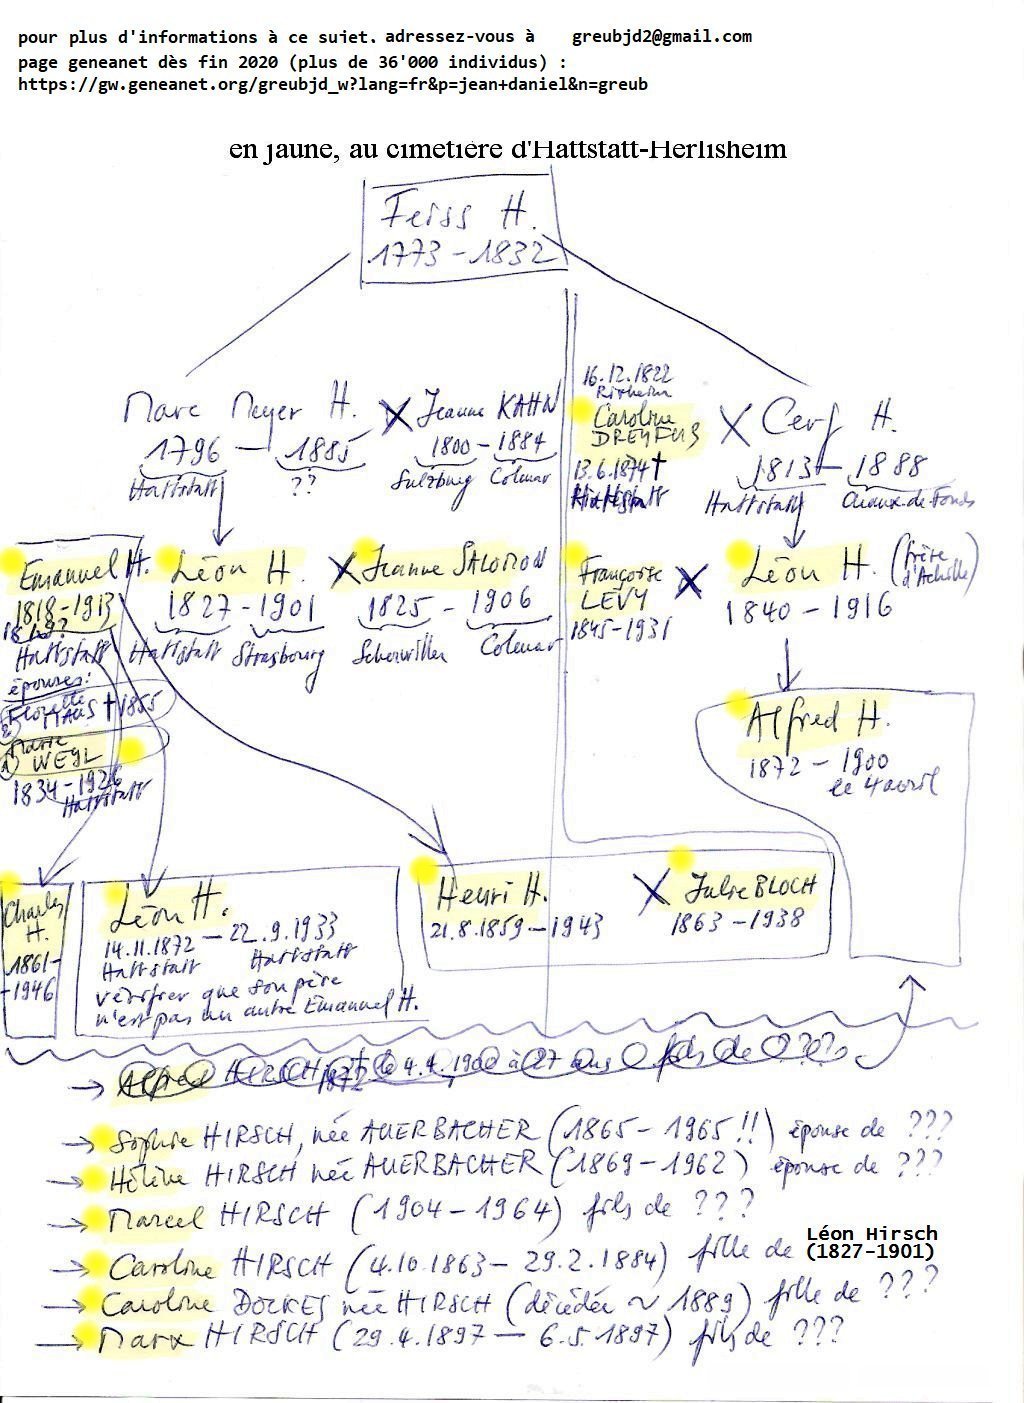 pour plus d'informations à ce sujet. adressez-vous à greubjd2@gmail.com
page geneanet dès fin 2020 (plus de 36'000 individus) :
https://gw.geneanet.org/greubjd_w?lang=fr&p=jean+daniel&n=greub
en jaune, au cimetière d'Hattstatt-Herlisheim
Feiss H.
1773 - 1832
Marc Meyer H. X Jeanne KAHN
1796 — 1885 1800 - 1884
Hattstatt ?? Sulzburg Colmar
16.12.1822
Rixheim
Caroline
DREYFUS
13.6.1874 †
Hattstatt
X Cerf H.
1813 - 1888
Hattstatt Chaux-de-Fonds
Emanuel H.
1818-1913
1819?
Hattstatt
épouses:
Florette
HAAS † 1855
Marie
WEYL
1834-1926
Hattstatt
Léon H. X Jeanne SALOMON
1827 - 1901 1825 - 1906
Hattstatt Strasbourg Scherwiller Colmar
Françoise
LEVY
1845-1931
X Léon H. (frère
d'Achille)
1840 - 1916
Alfred H.
1872 - 1900
le 4 avril
Charles
H.
1861-
-1946
Léon H.
14.11.1872 — 22.9.1933
Hattstatt Hattstatt
vérifier que son père
n'est pas un autre Emanuel H.
Henri H. X Julie BLOCH
21.8.1859 - 1943 1863 - 1938
→ Alfred HIRSCH † le 4.4.1900 à 27 ans fils de ???
1872
→ Sophie HIRSCH, née AUERBACHER (1865 - 1965 !!) épouse de ???
→ Hélène HIRSCH née AUERBACHER (1869 - 1962) épouse de ???
→ Marcel HIRSCH (1904 - 1964) fils de ???
→ Caroline HIRSCH (4.10.1863 - 29.2.1884) fille de Léon Hirsch
(1827-1901)
→ Caroline DOCKES née HIRSCH (décédée ~ 1889) fille de ???
→ Marx HIRSCH (29.4.1897 — 6.5.1897) fils de ???